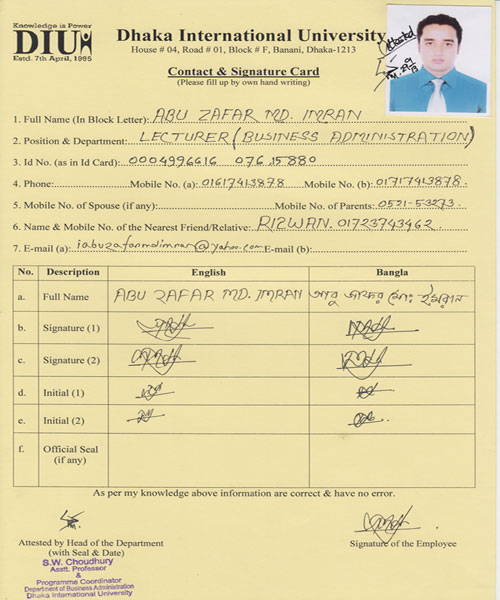 Knowledge is Power
DIU
Estd. 7th April, 1995
Dhaka International University
House # 04, Road # 01, Block # F, Banani, Dhaka-1213
Contact & Signature Card
(Please fill up by own hand writing)
Attested
1. Full Name (In Block Letter): ABU ZAFAR MD. IMRAN
2. Position & Department: LECTURER (BUSINESS ADMINISTRATION)
3. Id No. (as in Id Card): 0004996616 076.15880
4. Phone: Mobile No. (a): 01617413878 Mobile No. (b): 01717413878
5. Mobile No. of Spouse (if any): Mobile No. of Parents: 0521-53273
6. Name & Mobile No. of the Nearest Friend/Relative: RIZWAN. 01723743462
7. E-mail (a): iabuzafarmdimran@yahoo.com E-mail (b):
No. Description English Bangla
a. Full Name ABU ZAFAR MD. IMRAN আবু জাফর মোঃ ইমরান
b. Signature (1)
c. Signature (2)
d. Initial (1)
e. Initial (2)
f. Official Seal (if any)
As per my knowledge above information are correct & have no error.
Attested by Head of the Department
(with Seal & Date)
Signature of the Employee
S.W. Choudhury
Asstt. Professor
&
Programme Coordinator
Department of Business Administration
Dhaka International University